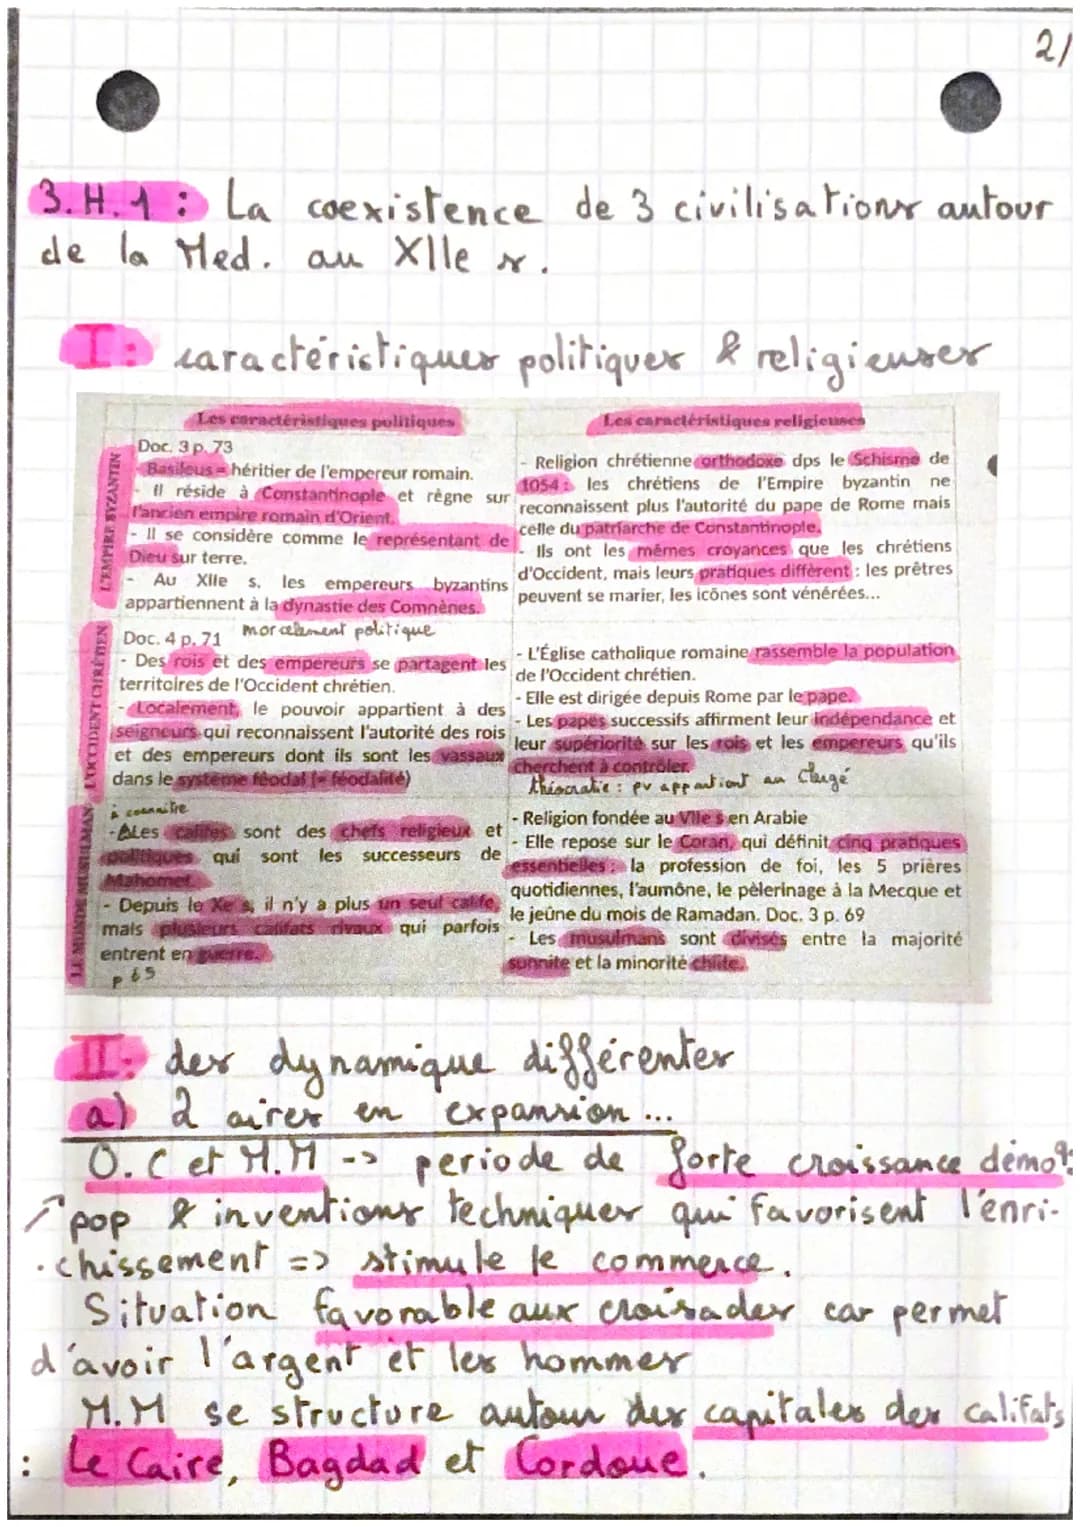 2/
3.H.1 : La coexistence de 3 civilisations autour
de la Med. au XIIe s.
I: caractéristiques politiques & religieuses
Les caractéristiques politiques
Les caractéristiques religieuses
L'EMPIRE BYZANTIN
Doc. 3 p. 73
- Basileus = héritier de l'empereur romain.
- Il réside à Constantinople et règne sur
l'ancien empire romain d'Orient.
- Il se considère comme le représentant de
Dieu sur terre.
- Au XIIe s. les empereurs byzantins
appartiennent à la dynastie des Comnènes.
- Religion chrétienne orthodoxe dps le Schisme de
1054 : les chrétiens de l'Empire byzantin ne
reconnaissent plus l'autorité du pape de Rome mais
celle du patriarche de Constantinople.
- Ils ont les mêmes croyances que les chrétiens
d'Occident, mais leurs pratiques diffèrent : les prêtres
peuvent se marier, les icônes sont vénérées...
L'OCCIDENT CHRÉTIEN
Doc. 4 p. 71 morcelement politique
- Des rois et des empereurs se partagent les
territoires de l'Occident chrétien.
- Localement, le pouvoir appartient à des
seigneurs qui reconnaissent l'autorité des rois
et des empereurs dont ils sont les vassaux
dans le système féodal (= féodalité)
- L'Église catholique romaine rassemble la population
de l'Occident chrétien.
- Elle est dirigée depuis Rome par le pape.
- Les papes successifs affirment leur indépendance et
leur supériorité sur les rois et les empereurs qu'ils
cherchent à contrôler.
théocratie : pv appartient au Clergé
LE MONDE MUSULMAN
à connaitre
- Les califes sont des chefs religieux et
politiques qui sont les successeurs de
Mahomet.
- Depuis le Xe s, il n'y a plus un seul calife,
mais plusieurs califats rivaux qui parfois
entrent en guerre.
p 65
- Religion fondée au VIIe s en Arabie
- Elle repose sur le Coran, qui définit cinq pratiques
essentielles : la profession de foi, les 5 prières
quotidiennes, l'aumône, le pèlerinage à la Mecque et
le jeûne du mois de Ramadan. Doc. 3 p. 69
- Les musulmans sont divisés entre la majorité
sunnite et la minorité chiite.
II: des dynamique différentes
a) 2 aires en expansion ...
O.C et M.M -> periode de forte croissance démoq:
↗ pop & inventions techniques qui favorisent l'enri-
.chissement => stimule le commerce.
Situation favorable aux croisades car permet
d'avoir l'argent et les hommes
M.M se structure autour des capitales des califats
: Le Caire, Bagdad et Cordoue.